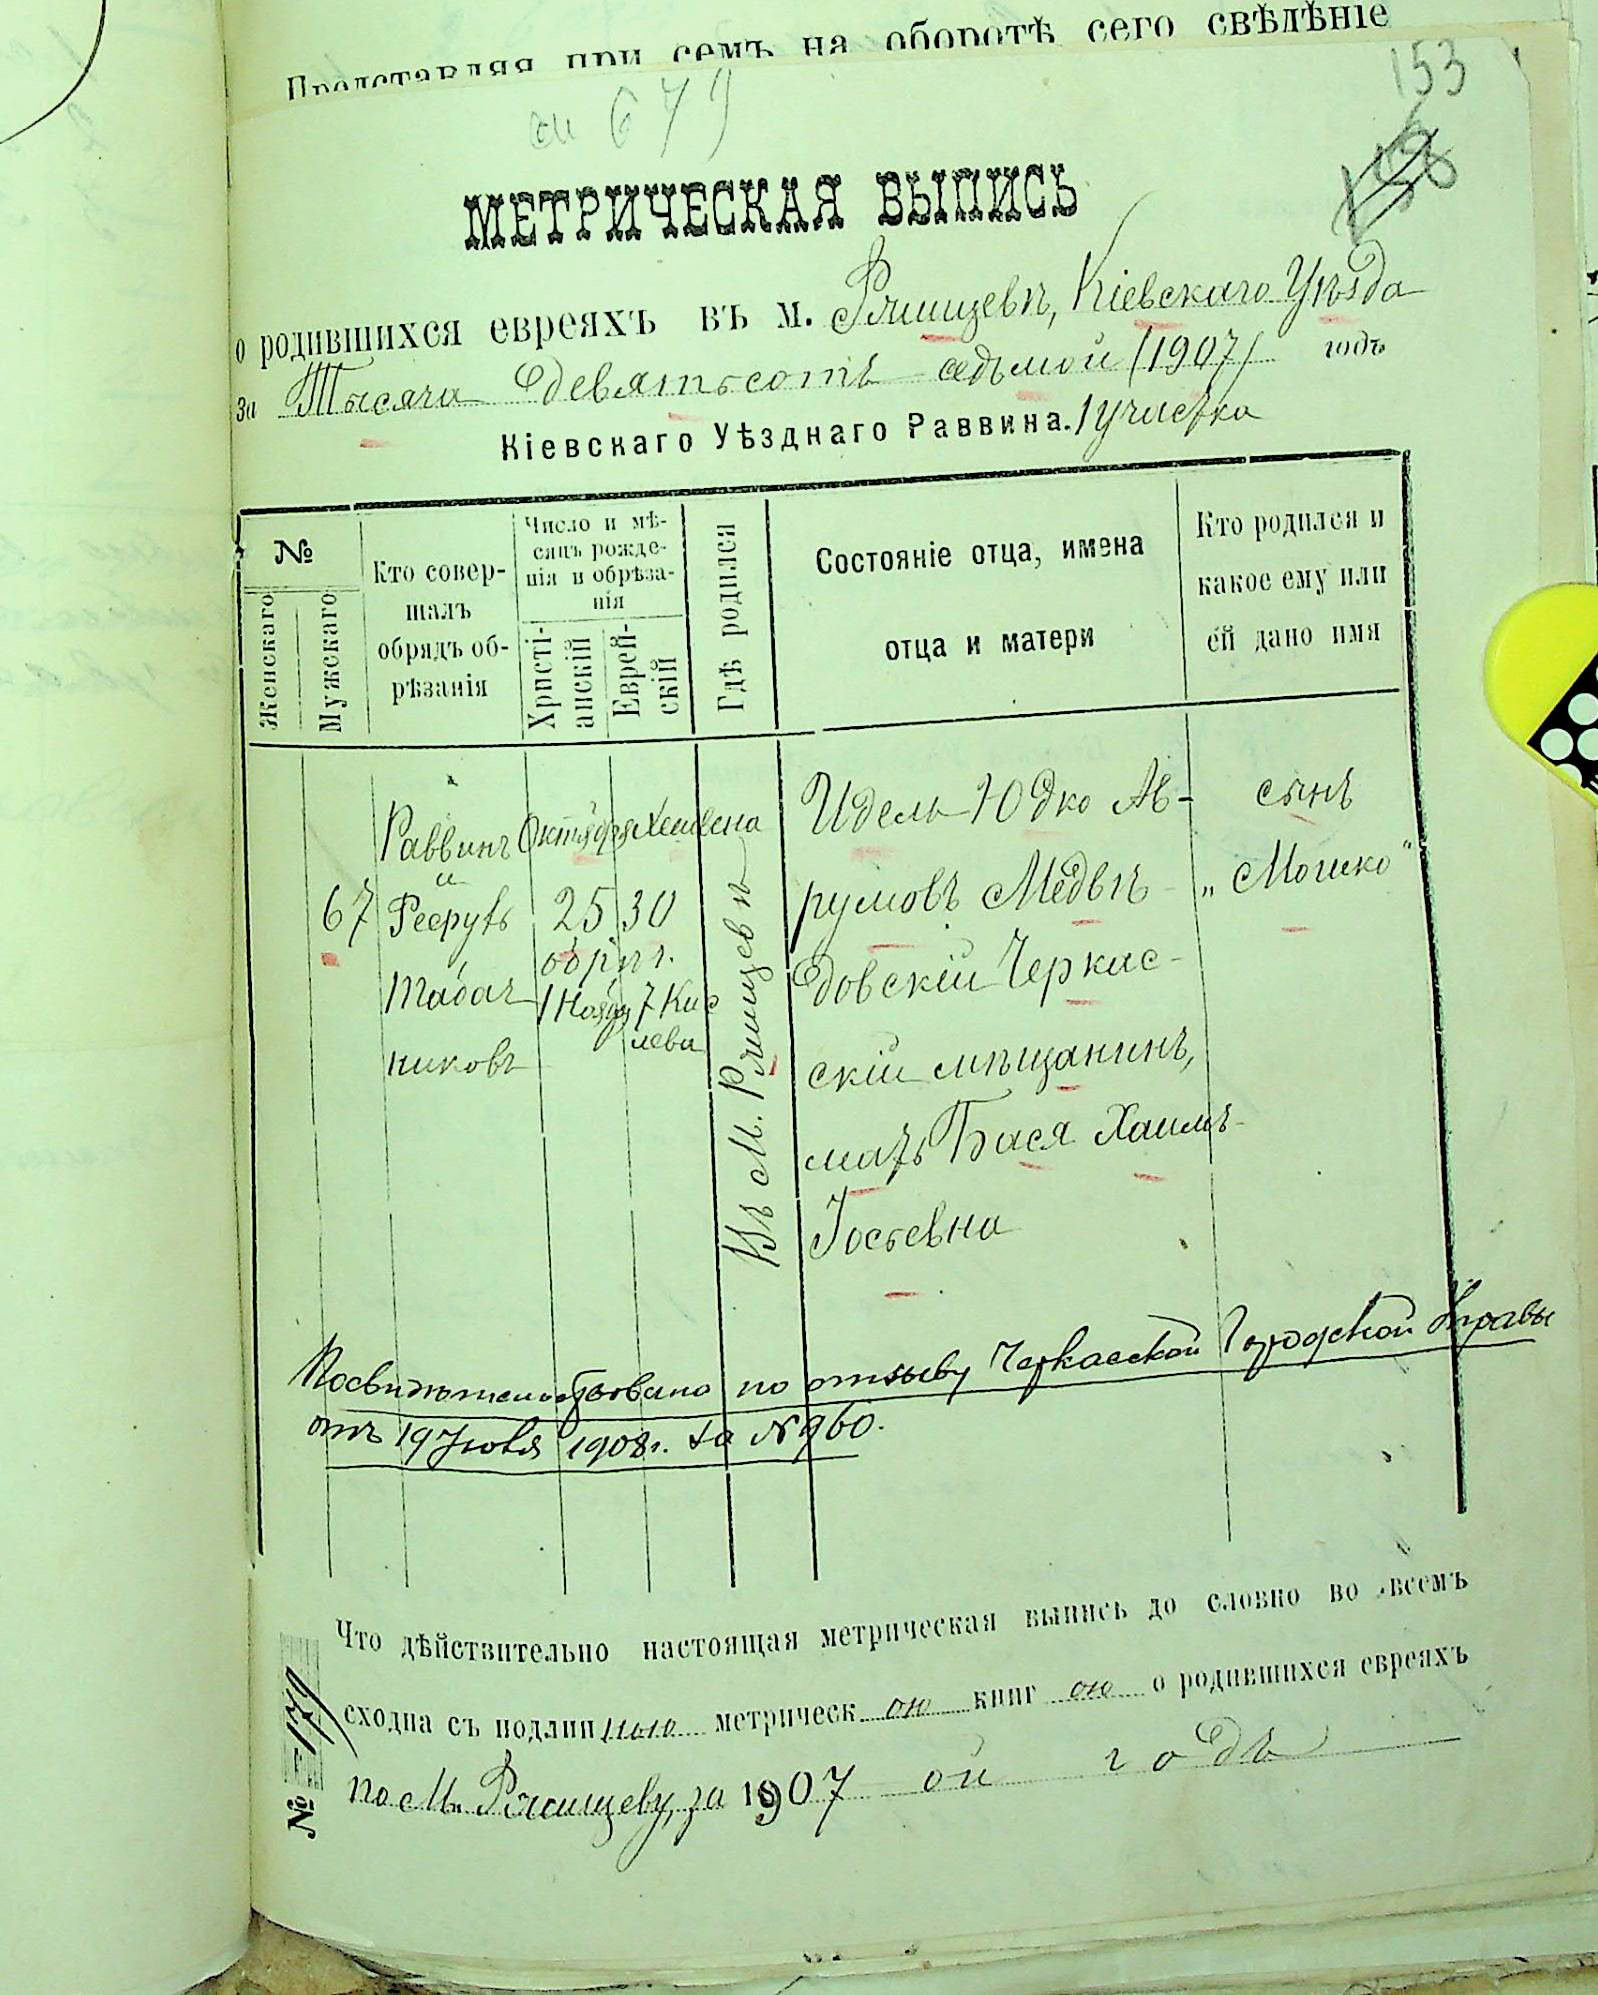 Представляя при семъ на оборотѣ сего свѣдѣніе
см 679
153
МЕТРИЧЕСКАЯ ВЫПИСЬ
о родившихся евреяхъ въ м. Ржищевѣ, Кіевскаго Уѣзда
за Тысяча девятьсотъ седьмой (1907) годъ
Кіевскаго Уѣзднаго Раввина. 1 участка
№
Женскаго
Мужскаго
Кто совер-
шалъ
обрядъ об-
рѣзанія
Число и мѣ-
сяцъ рожде-
нія и обрѣза-
нія
Христі-
анскій
Еврей-
скій
Гдѣ родился
Состояніе отца, имена
отца и матери
Кто родился и
какое ему или
ей дано имя
67
Раввинъ
и
Рееруть
Табач
никовъ
Октября
25
обрѣз.
1 Ноябр
Хешвена
30
7 Кис
лева
Въ м. Ржищевѣ
Идель-Юдко Аб-
румовъ Медвѣ-
довскій Черкас-
скій мѣщанинъ,
мать Бася Хаимъ-
Іосьевна
сынъ
„Мошко"
Посвидѣтельствовано по отзыву Черкасской Городской Управы
отъ 19 Іюня 1908 г. за № 960.
Что дѣйствительно настоящая метрическая выпись до словно во всемъ
сходна съ подлинною метрическ ою книг ою о родившихся евреяхъ
по м. Ржищеву, за 1907 ой годъ
№ 179